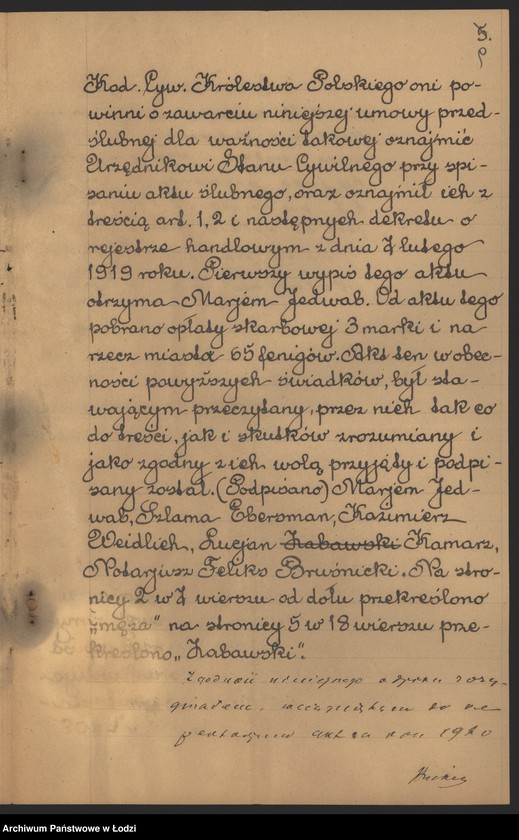 5.
Kod. Cyw. Królestwa Polskiego oni po-
winni o zawarciu niniejszej umowy przed-
ślubnej dla ważności takowej oznajmić
Urzędnikowi Stanu Cywilnego przy spi-
saniu aktu ślubnego, oraz oznajmił ich z
treścią art. 1, 2 i następnych dekretu o
rejestrze handlowym z dnia 7 lutego
1919 roku. Pierwszy wypis tego aktu
otrzyma Marjem Jedwab. Od aktu tego
pobrano opłaty skarbowej 3 marki i na
rzecz miasta 65 fenigów. Akt ten w obec-
ności powyższych świadków, był sta-
wającym przeczytany, przez nich tak co
do treści, jak i skutków zrozumiany i
jako zgodny z ich wolą przyjęty i podpi-
sany został. (Podpisano) Marjem Jed-
wab, Szlama Ebersman, Kazimierz
Weidlich, Lucjan Kabawski Kamarz,
Notarjusz Feliks Bruśnicki. Na stro-
nicy 2 w 7 wierszu od dołu przekreślono
"męża" na stronicy 5 w 18 wierszu prze-
kreślono „Kabawski".
Zgodność niniejszego
do re
aktów za rok 1920
Archiwum Państwowe w Łodzi